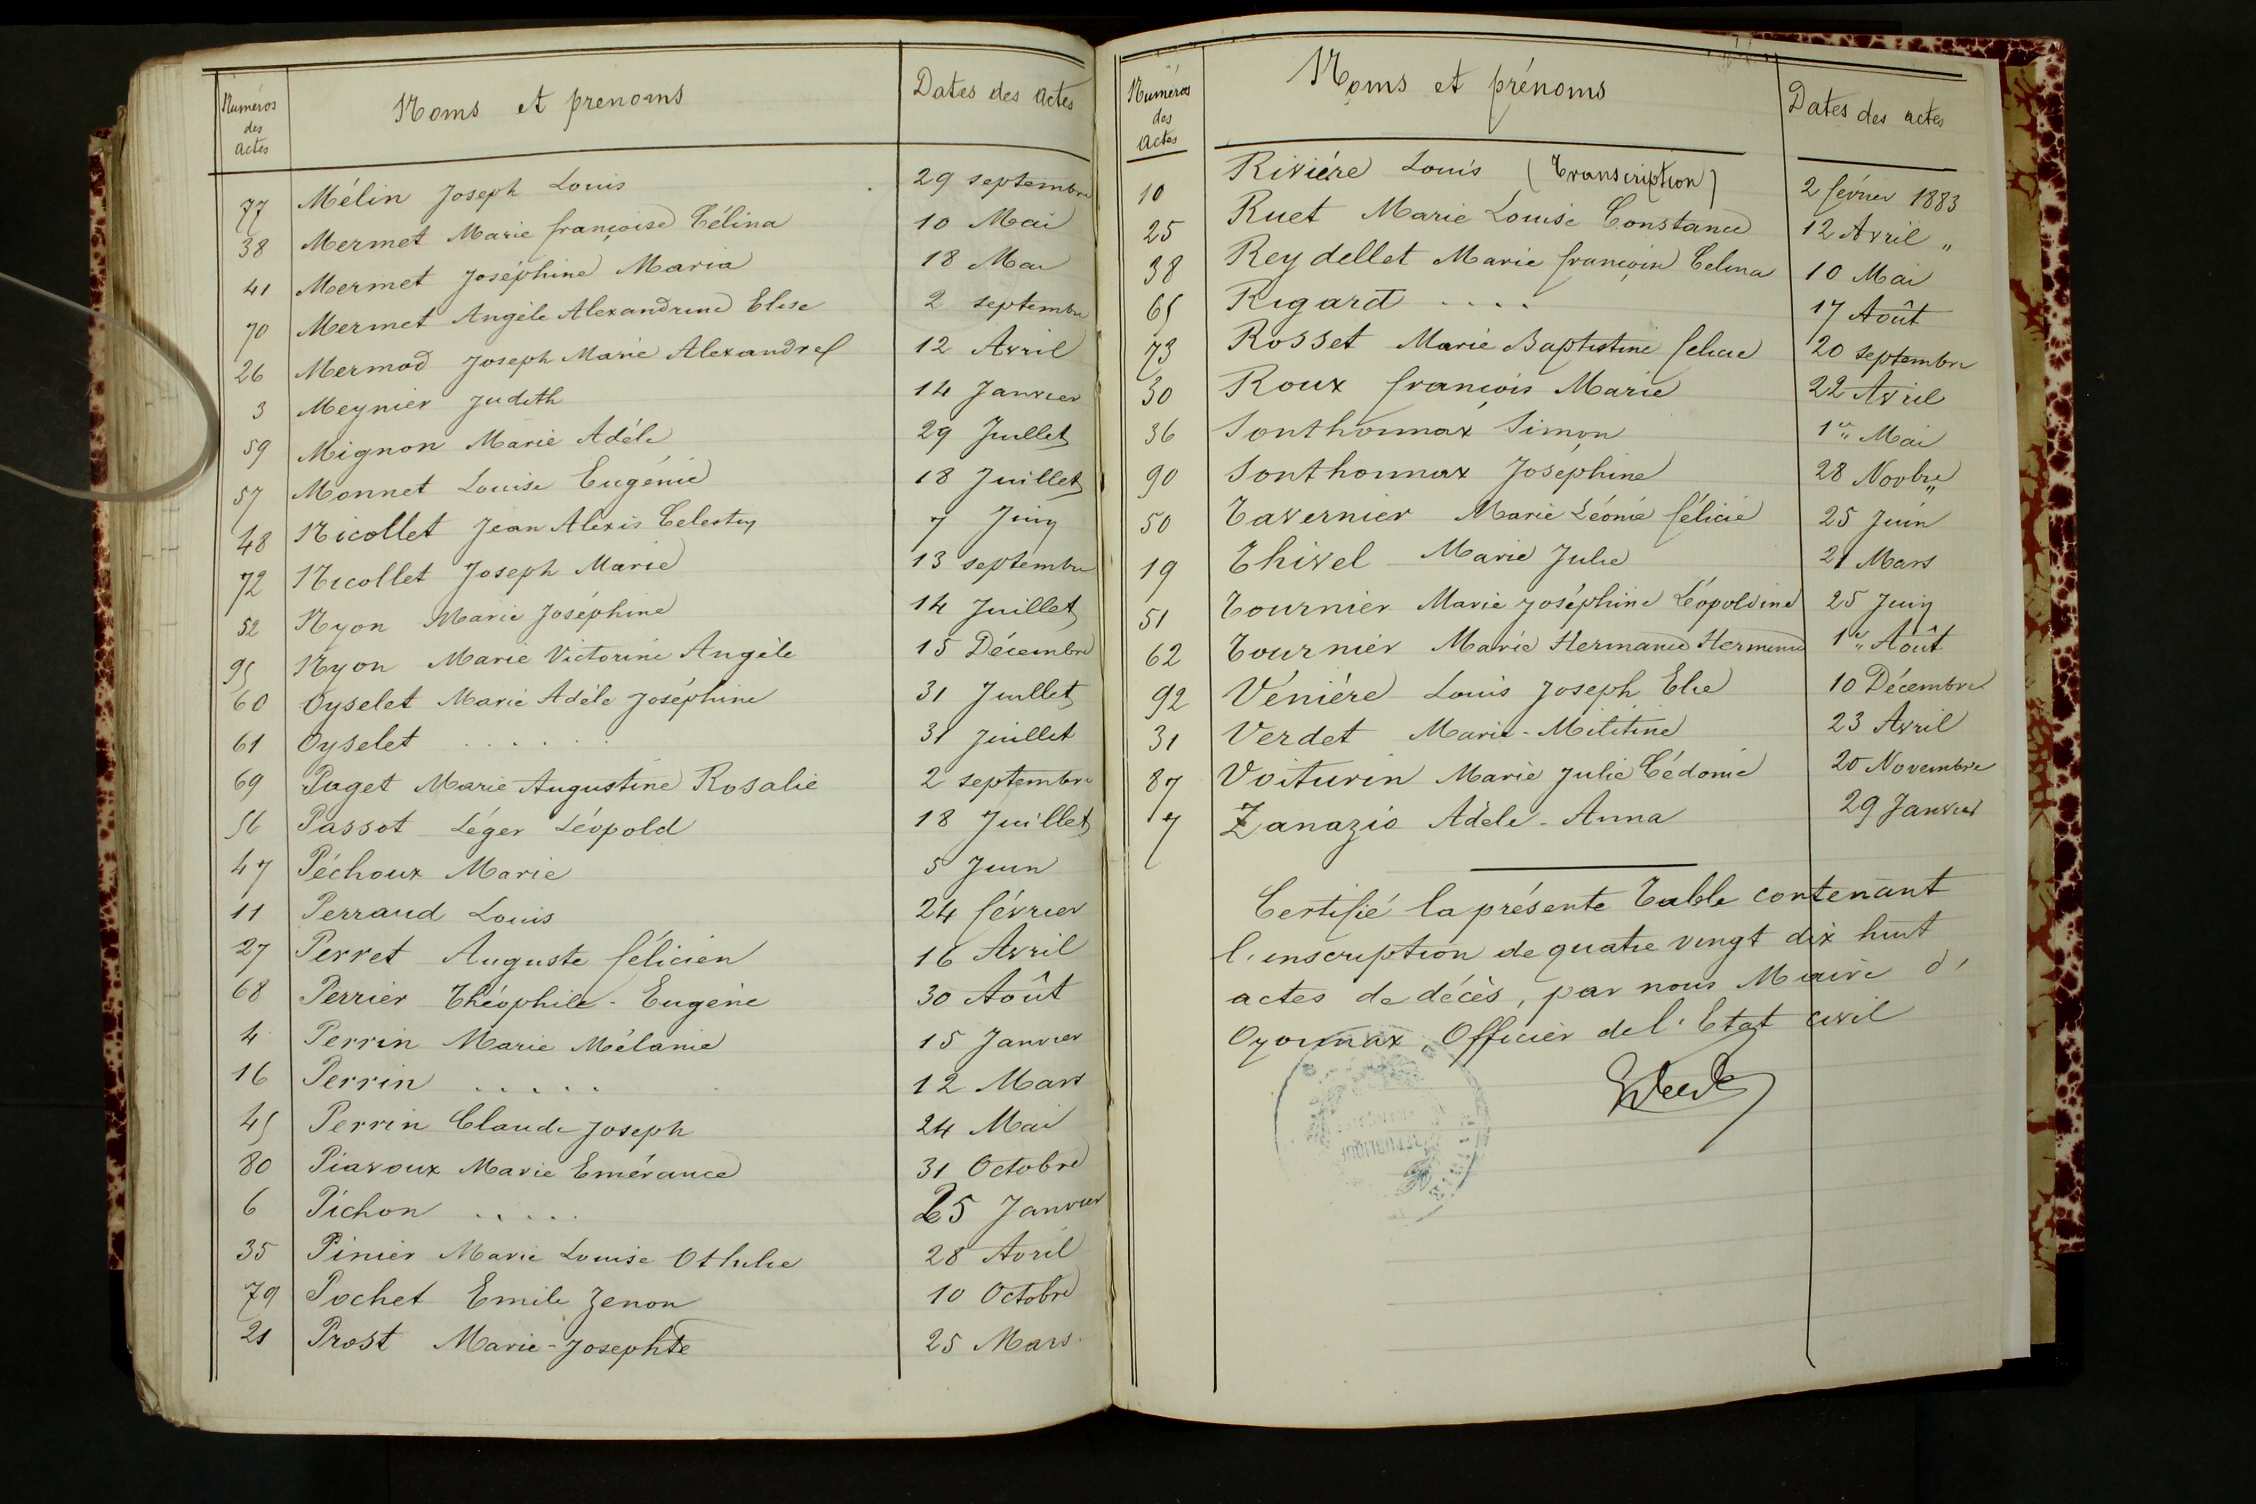 Numéros des actes Noms et prenoms Dates des actes
77 Mélin Joseph Louis 29 septembre
38 Mermet Marie françoise Célina 10 Mai
41 Mermet Joséphine Maria 18 Mai
70 Mermet Angèle Alexandrine Elise 2 septembre
26 Mermod Joseph Marie Alexandre 12 Avril
3 Meynier Judith 14 Janvier
59 Mignon Marie Adéle 29 Juillet
57 Monnet Louise Eugénie 18 Juillet
48 Nicollet Jean Alexis Celestin 7 Juin
72 Nicollet Joseph Marie 13 septembre
52 Nyon Marie Joséphine 14 Juillet
95 Nyon Marie Victorine Angèle 15 Décembre
60 Oyselet Marie Adèle Joséphine 31 Juillet
61 Oyselet ...... 31 Juillet
69 Paget Marie Augustine Rosalie 2 septembre
56 Passot Léger Léopold 18 Juillet
47 Péchoux Marie 5 Juin
11 Perraud Louis 24 février
27 Perret Auguste félicien 16 Avril
68 Perrier Théophile - Eugène 30 Août
4 Perrin Marie Mélanie 15 Janvier
16 Perrin ..... 12 Mars
45 Perrin Claude Joseph 24 Mai
80 Piavoux Marie Emérance 31 Octobre
6 Pichon ..... 25 Janvier
35 Pinier Marie Louise Othilie 28 Avril
79 Pochet Emile Zenon 10 Octobre
21 Prost Marie-Josephte 25 Mars
Numéros des actes Noms et prénoms Dates des actes
10 Riviére Louis (Transcription) 2 février 1883
25 Ruet Marie Louise Constance 12 Avril "
38 Reydellet Marie françoise Celina 10 Mai
65 Rigard .... 17 Août
73 Rosset Marie Baptistine felicie 20 septembre
30 Roux françois Marie 22 Avril
36 Sonthonnax Simon 1er Mai
90 Sonthonnax Joséphine 28 Novbre
50 Tavernier Marie Léonie félicie 25 Juin
19 Thivel Marie Julie 21 Mars
51 Tournier Marie Joséphine Léopoldine 25 Juin
62 Tournier Marie Hermance Herminie 1er Août
92 Véniére Louis Joseph Elie 10 Décembre
31 Verdet Marie-Mélitine 23 Avril
87 Voiturin Marie Julie Cédonie 20 Novembre
7 Zanazio Adèle - Anna 29 Janvier
Certifié la présente Table contenant
l'inscription de quatre vingt dix huit
actes de décès, par nous Maire d'
Oyonnax Officier de l'Etat civil